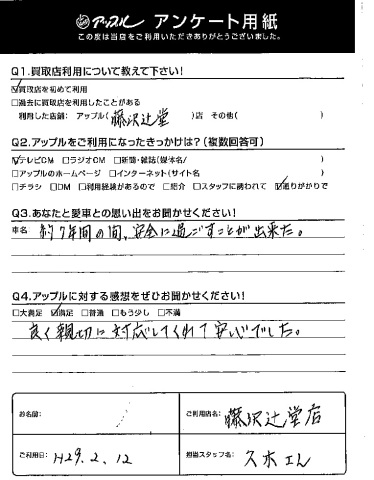 アップル アンケート用紙
この度は当店をご利用いただきありがとうございました。
Q1.買取店利用について教えて下さい!
☑買取店を初めて利用
□過去に買取店を利用したことがある
利用した店舗: アップル( 藤沢辻堂 )店 その他( )
Q2.アップルをご利用になったきっかけは?(複数回答可)
☑テレビCM □ラジオCM □新聞・雑誌(媒体名/ )
□アップルのホームページ □インターネット(サイト名 )
□チラシ □DM □利用経験があるので □紹介 □スタッフに誘われて ☑通りがかりで
Q3.あなたと愛車との思い出をお聞かせください!
車名 約7年間の間、安全に過ごすことが出来た。
Q4.アップルに対する感想をぜひお聞かせください!
□大満足 ☑満足 □普通 □もう少し □不満
良く親切に対応してくれて安心でした。
お名前:
ご利用店名: 藤沢辻堂店
ご利用日: H29.2.12
担当スタッフ名: 久木さん